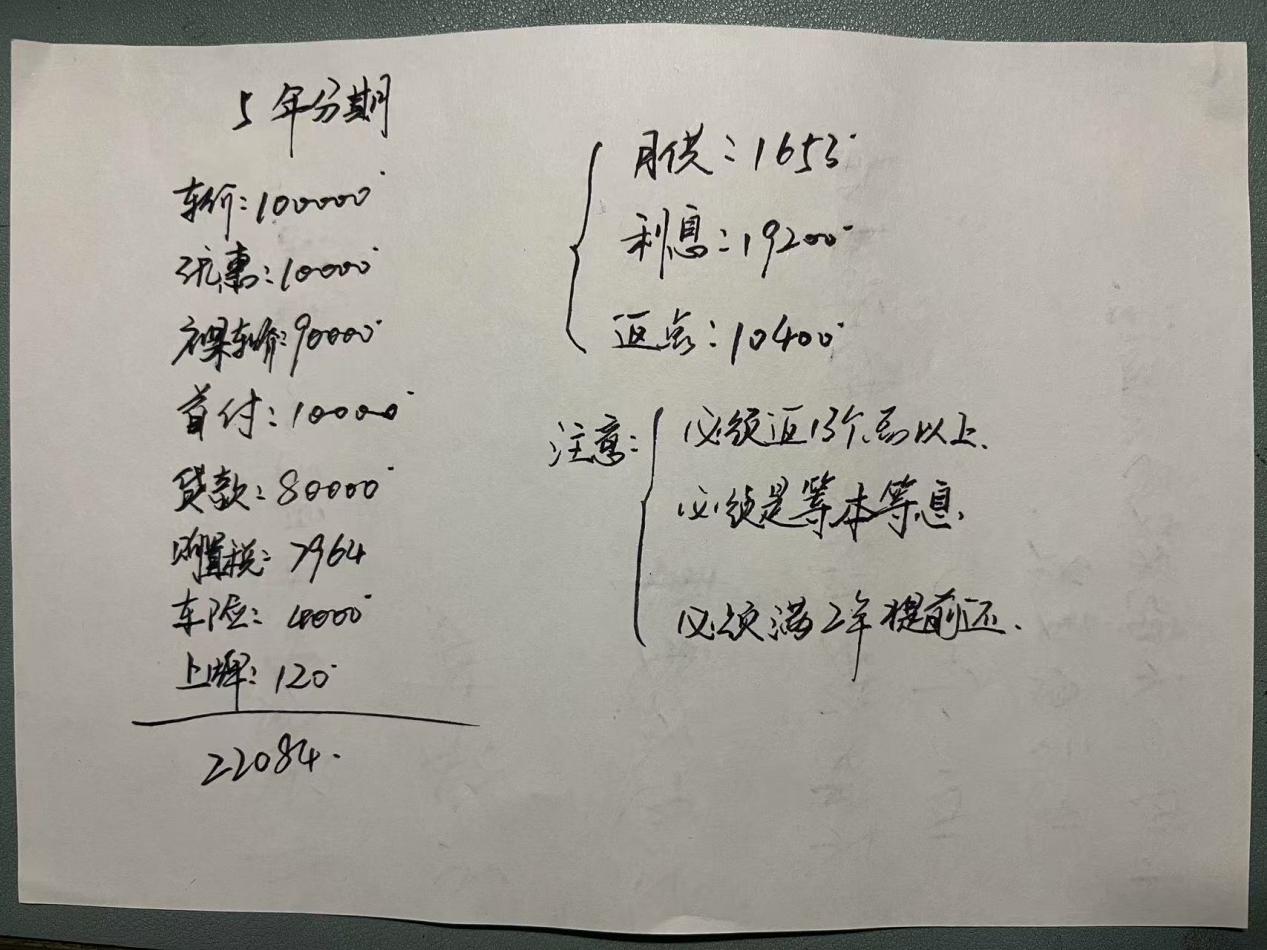 5年分期
车价:100000
优惠:10000
裸车价:90000
首付:10000
贷款:80000
购置税:7964
车险:4000
上牌:120
22084.
月供:1653
利息:19200
返点:10400
注意:
必须返13个点以上.
必须是等本等息.
必须满2年提前还.